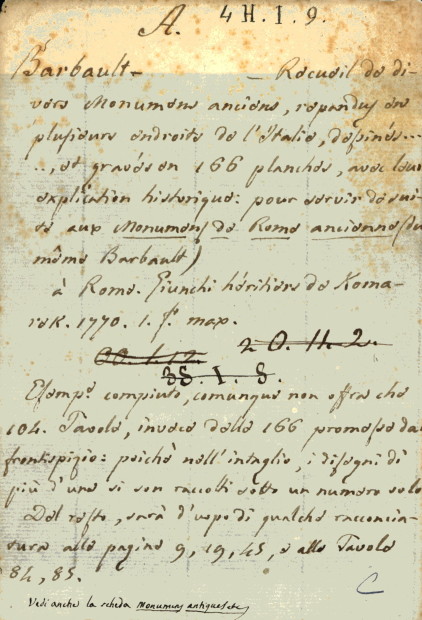 A. 4 H. I. 9.
Barbault - - Recueil de di-
vers Monumens anciens, repandus en
plusieurs endroits de l'Italie, dessinés...
.., et gravés en 166 planches, avec leur
explication historique: pour servir de sui-
te aux Monumens de Rome ancienne (du
même Barbault)
à Rome. Giunchi héritiers de Koma-
rek. 1770. 1. f.° max.
20. H. 2.
38. I. 8.
Esemp.e compiuto, comunque non offra che
104. Tavole, invece delle 166 promesse dal
frontispizio: poichè nell'intaglio, i disegni di
più d'una si son raccolti sotto un numero solo.
Del resto, sarà d'uopo di qualche racconcia-
tura alle pagine 9, 19, 45, e alle Tavole
84, 85.
C
Vedi anche la scheda Monumens antiques etc.